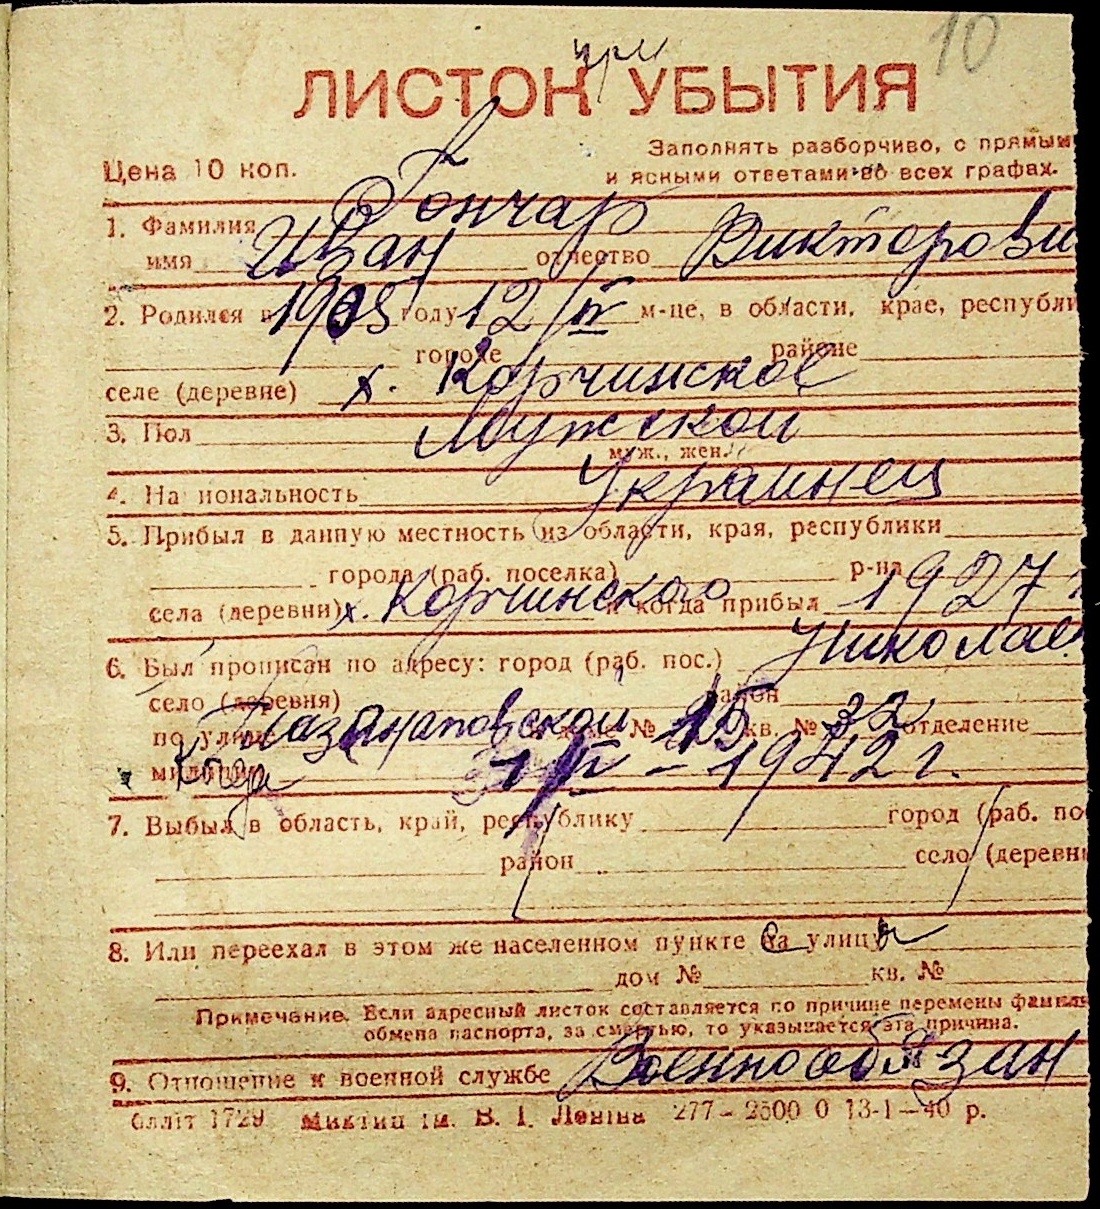 10
ЛИСТОК УБЫТИЯ
Цена 10 коп.
Заполнять разборчиво, с прямым
и ясными ответами во всех графах.
1. Фамилия Гончар
имя Иван отчество Викторови
2. Родился в 1905 году 12/IV м-це, в области, крае, республи
городе районе
селе (деревне) х. Корчинское
3. Пол Мужской
муж., жен.
4. На иональность Украинец
5. Прибыл в данную местность из области, края, республики
города (раб. поселка) р-на
села (деревни) х. Корчинского и когда прибыл 1927
6. Был прописан по адресу: город (раб. пос.) Николае
село (деревня) район
по улице дом № 15 кв. № 32 отделение
милиции 1942 г.
7. Выбыл в область, край, республику город (раб. по
район село (деревн
8. Или переехал в этом же населенном пункте на улицу
дом № кв. №
Примечание. Если адресный листок составляется по причине перемены фамили
обмена паспорта, за смертью, то указывается эта причина.
9. Отношение к военной службе Военнообязан
блліт 1729 Миктип ім. В. І. Леніна 277–2500 0 13-1–40 р.